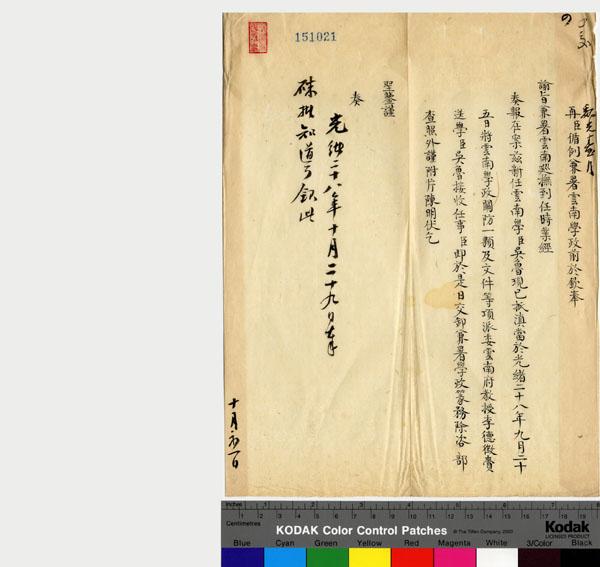 再臣循例兼署雲南學政前於欽奉
諭旨兼署雲南巡撫到任時業經
奏報在案茲新任雲南學臣吳魯現已抵滇當於光緒二十八年九月二十
五日將雲南學政關防一顆及文件等項派委雲南府教授李德徵賫
送學臣吳魯接收任事臣即於是日交卸兼署學政篆務除咨部
查照外謹附片陳明伏乞
聖鑒謹
奏
光緒二十八年十月二十九日奉
硃批知道了欽此
151021
Inches
Centimetres
KODAK Color Control Patches
© The Tiffen Company, 2000
Kodak
LICENSED PRODUCT
Blue Cyan Green Yellow Red Magenta White 3/Color Black